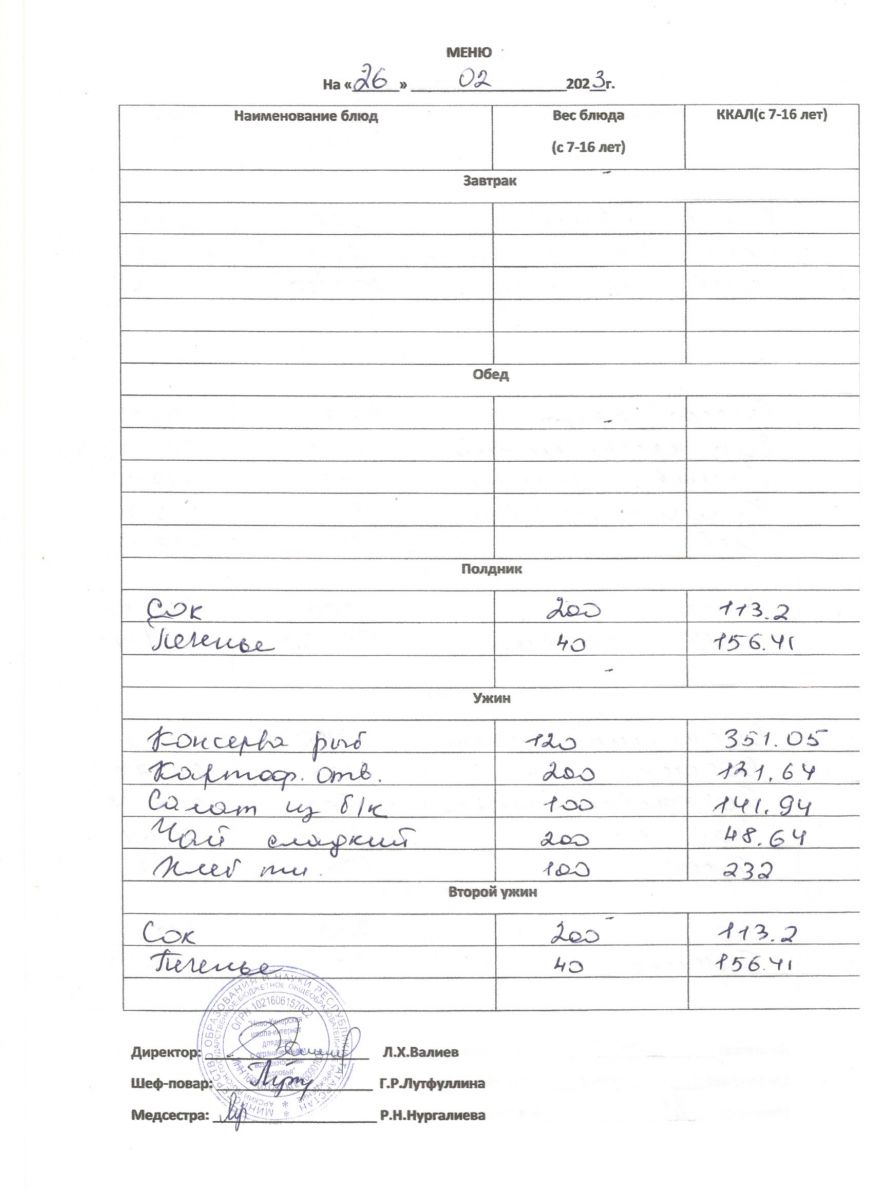 МЕНЮ
На «26» 02 2023г.
Наименование блюд Вес блюда (с 7-16 лет) ККАЛ(с 7-16 лет)
Завтрак
Обед
Полдник
Сок 200 113.2
Печенье 40 156.41
Ужин
Консерва рыб 120 351.05
Картоф. отв. 200 121,64
Салат из б/к 100 141.94
Чай сладкий 200 48.64
Хлеб пш. 100 232
Второй ужин
Сок 200 113.2
Печенье 40 156.41
Директор: Л.Х.Валиев
Шеф-повар: Г.Р.Лутфуллина
Медсестра: Р.Н.Нургалиева
ОГРН 1021606157022